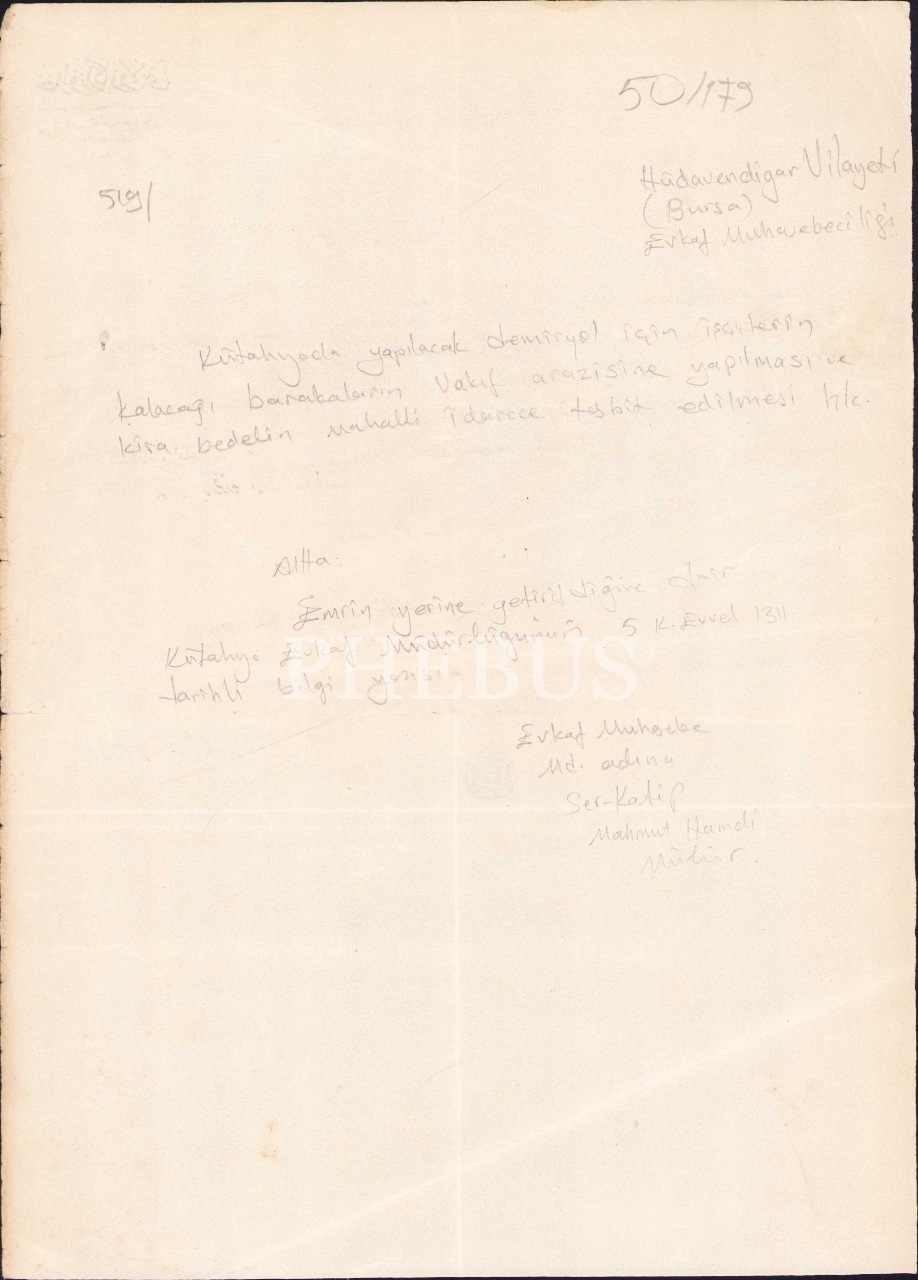 50/179
519/
Hüdavendigar Vilayeti
(Bursa)
Evkaf Muhasebeciliği
Kütahyada yapılacak demiryol için işçilerin
kalacağı barakaların Vakıf arazisine yapılması ve
kira bedelin Mahalli idarece tesbit edilmesi hk.
Altta:
Emrin yerine getirildiğine dair
Kütahya Evkaf Müdürlüğünün 5 K. Evvel 1311
tarihli bilgi yazısı
PHEBUS
Evkaf Muhasebe
Md. adına
Ser-Katip
Mahmut Hamdi
Mühür.